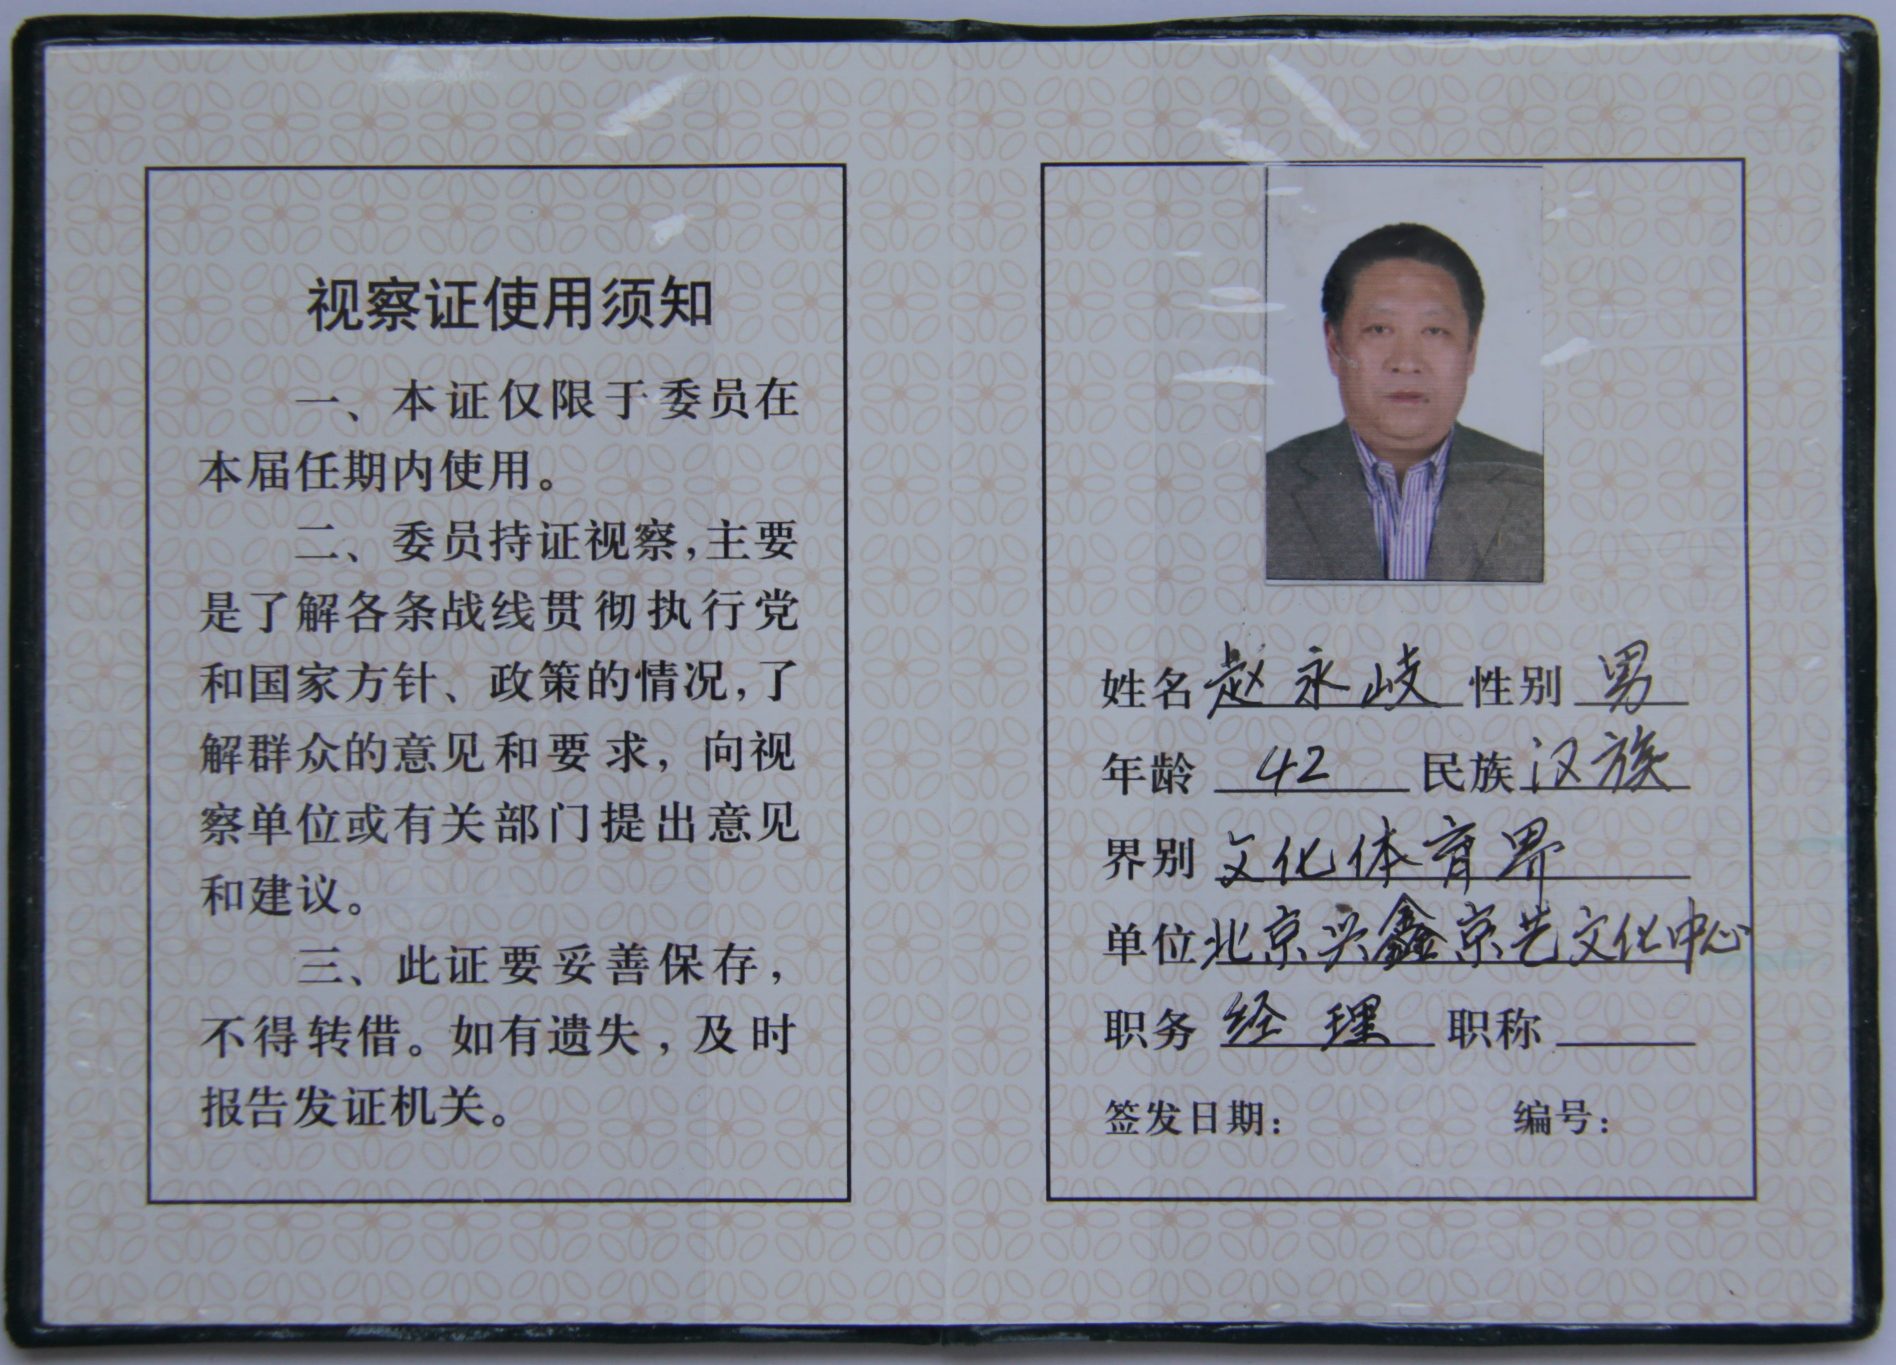 视察证使用须知
一、本证仅限于委员在
本届任期内使用。
二、委员持证视察,主要
是了解各条战线贯彻执行党
和国家方针、政策的情况,了
解群众的意见和要求,向视
察单位或有关部门提出意见
和建议。
三、此证要妥善保存,
不得转借。如有遗失,及时
报告发证机关。
姓名 赵永岐 性别 男
年龄 42 民族 汉族
界别 文化体育界
单位 北京兴鑫京艺文化中心
职务 经理 职称
签发日期: 编号: